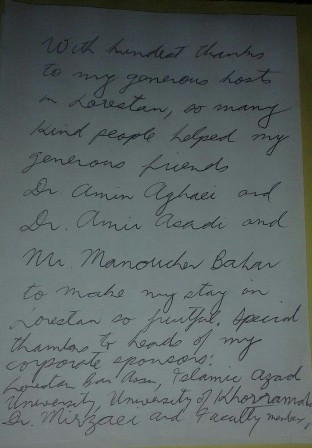 With kindest thanks
to my generous hosts
in Lorestan, so many
kind people helped my
generous friends
Dr. Amin Aghaei and
Dr. Amir Asadi and
Mr. Manoucher Bahar
to make my stay in
Lorestan so fruitful. Special
thanks to heads of my
corporate sponsors:
Lorestan Bar Assn, Islamic Azad
University, University of Khorramabad
Dr. Mirzaei and Faculty members,